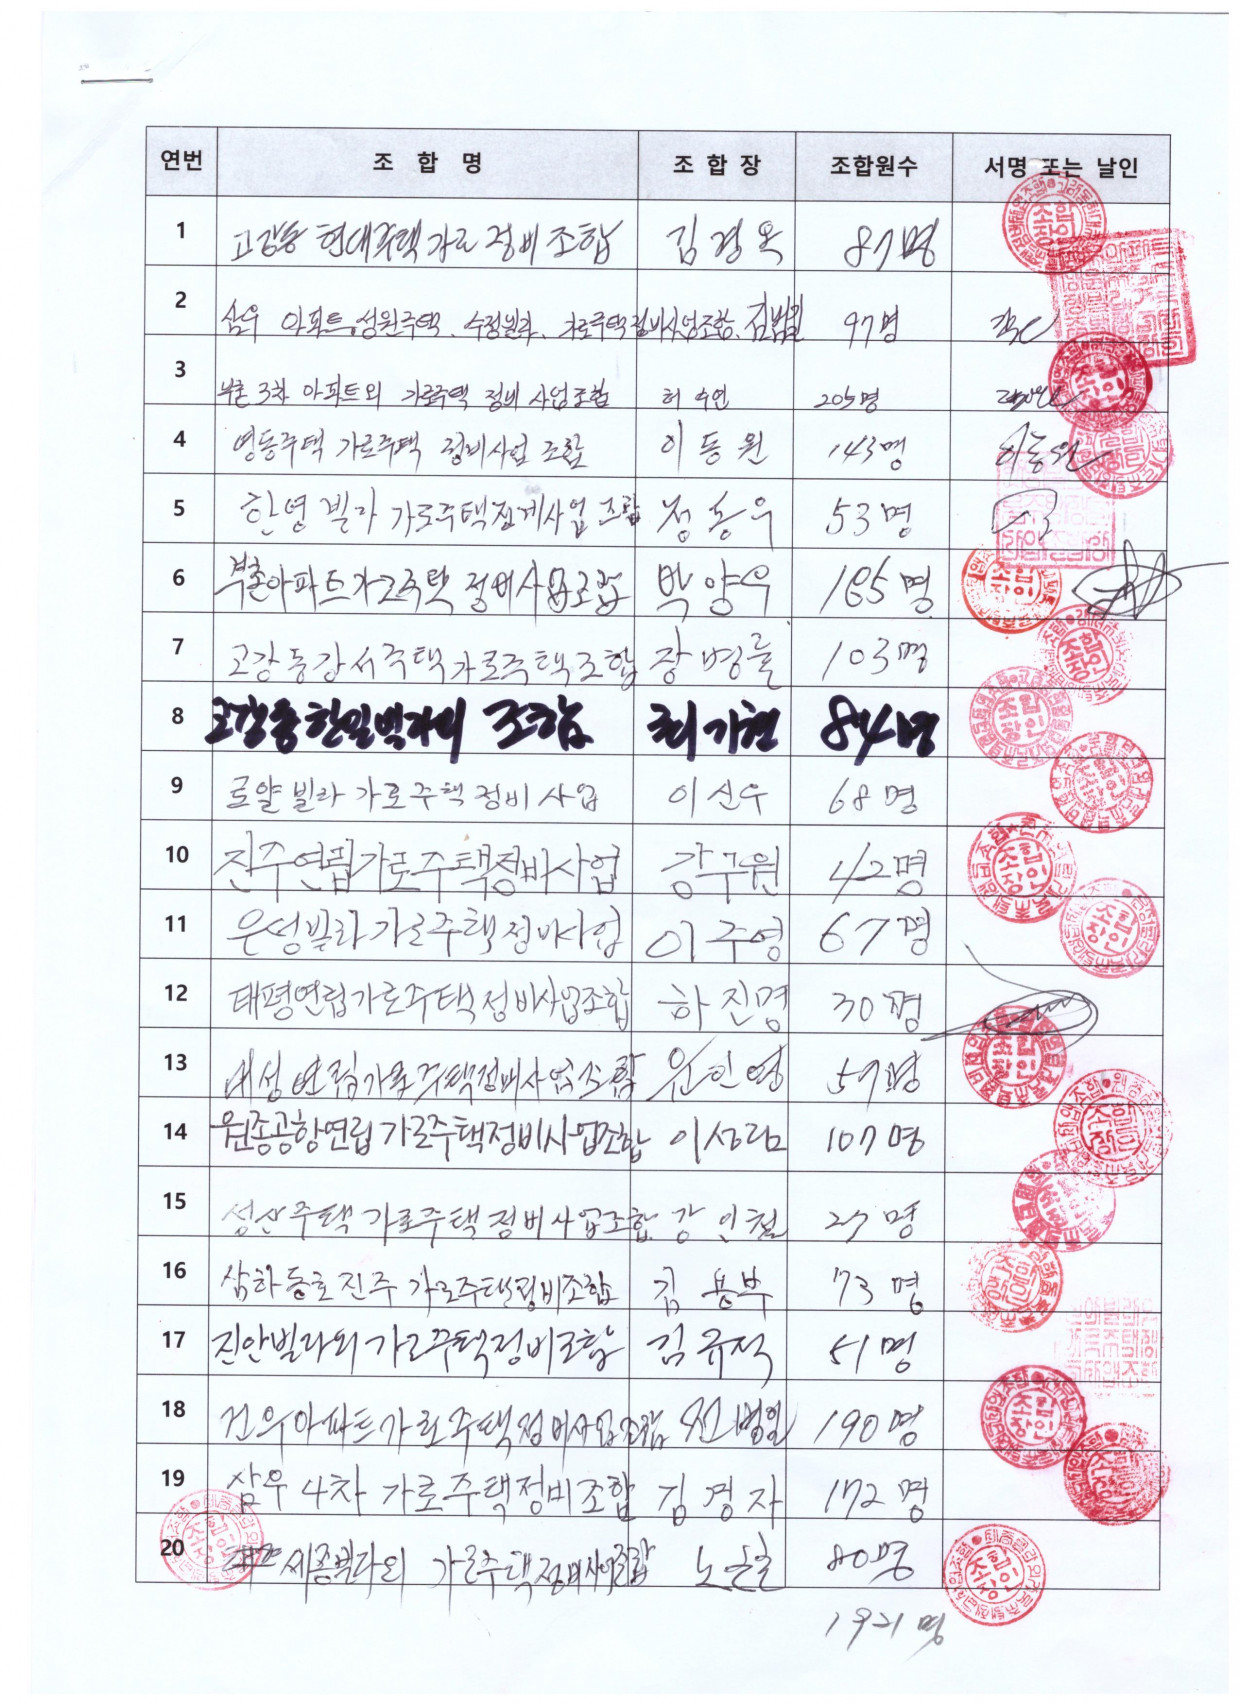 연번 조 합 명 조 합 장 조합원수 서명 또는 날인
1 고강동 현대주택 가로 정비 조합 김경옥 87명
2 삼우 아파트, 성원주택, 수정빌라, 가로주택정비사업조합, 김범일 97명
3 부촌 3차 아파트외 가로주택 정비 사업조합 허수연 205명
4 영동주택 가로주택 정비사업 조합 이동원 143명 이동원
5 한영빌라 가로주택정비사업 조합 정동우 53명
6 부촌아파트가로주택 정비사업조합 박양우 165명
7 고강동강서주택가로주택조합 장병률 103명
8 고강동한일빌라외 조합 최기현 84명
9 로얄빌라 가로주택정비사업 이신우 68명
10 진주연립가로주택정비사업 강구원 42명
11 은성빌라가로주택정비사업 이주영 67명
12 태평연립가로주택정비사업조합 하진명 30명
13 대성연립가로주택정비사업조합 원인영 57명
14 원종공항연립가로주택정비사업조합 이성림 107명
15 성산주택 가로주택정비사업조합 강인철 27명
16 삼하동호진주 가로주택정비조합 김용부 73명
17 진안빌라외 가로주택정비조합 김유적 51명
18 건우아파트가로주택정비사업조합 신병일 190명
19 삼우4차 가로주택정비조합 김경자 172명
20 세종빌라외 가로주택정비사업조합 80명
1921명